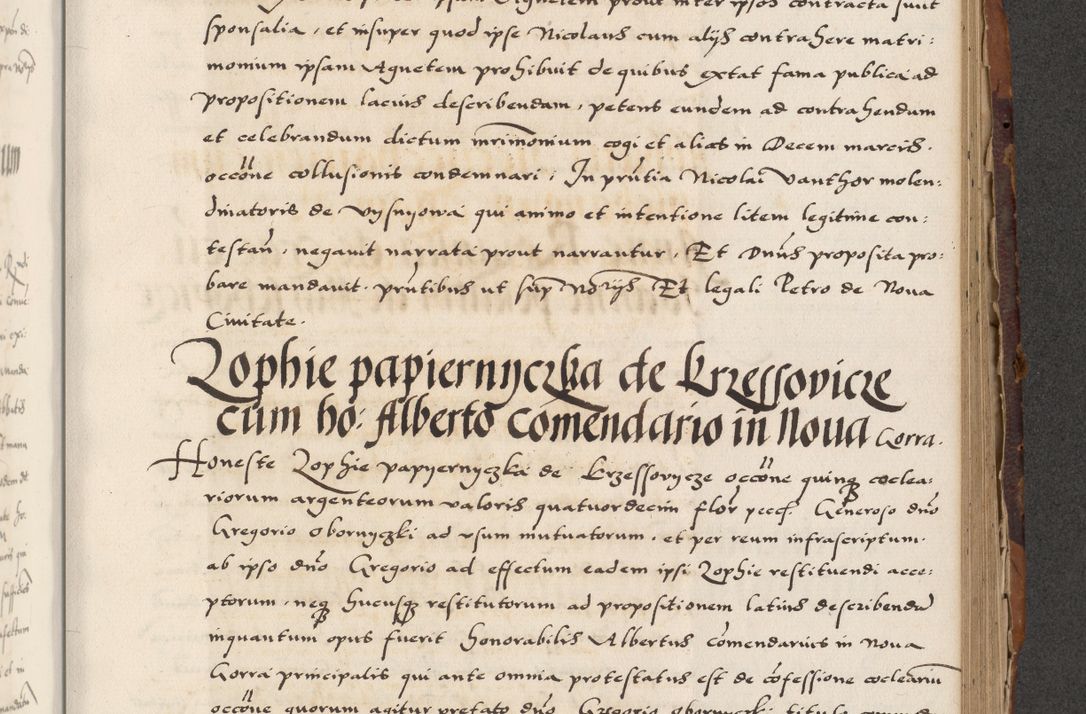 sponsalia, et insuper quod ipse Nicolaus cum alijs contrahere matri:
monium ipsam Agnetem prohibuit de quibus extat fama publica ad
propositionem lacius describendam, petens eundem ad contrahendum
et celebrandum dictum mrimonium cogi et alias in Decem marcis.
occone collusionis condemnari, In prntia Nicolai Vanthor molen:
dinatoris de Vysnyowa qui animo et intentione litem legitime con:
testan, negauit narrata prout narrantur, Et Dnus proposita pro:
bare mandauit. prntibus ut sup Norijs Et legali Petro de Noua
Ciuitate.
Zophie papiernyczka de Krzessovicze
cum ho: Alberto Comendario in Noua Gorra.
Honeste Zophie papyernyczka de Krzessovycze occone quinq coclea:
riorum argenteorum valoris quatuordecim flor pecc. Generoso dno
Gregorio obornyczki ad vsum mutuatorum, et per reum infrascriptum.
ab ipso dno Gregorio ad effectum eadem ipsi Zophie restituendi acce:
ptorum, neq hucusq restitutorum ad propositionem latius describenda
inquantum opus fuerit honorabilis Albertus Comendarius in Noua
Gorra principalis qui ante omnia protestatus est de cofessione cocleariu
occone quorum agitur prefato dno Gregorio obornyczki titulo